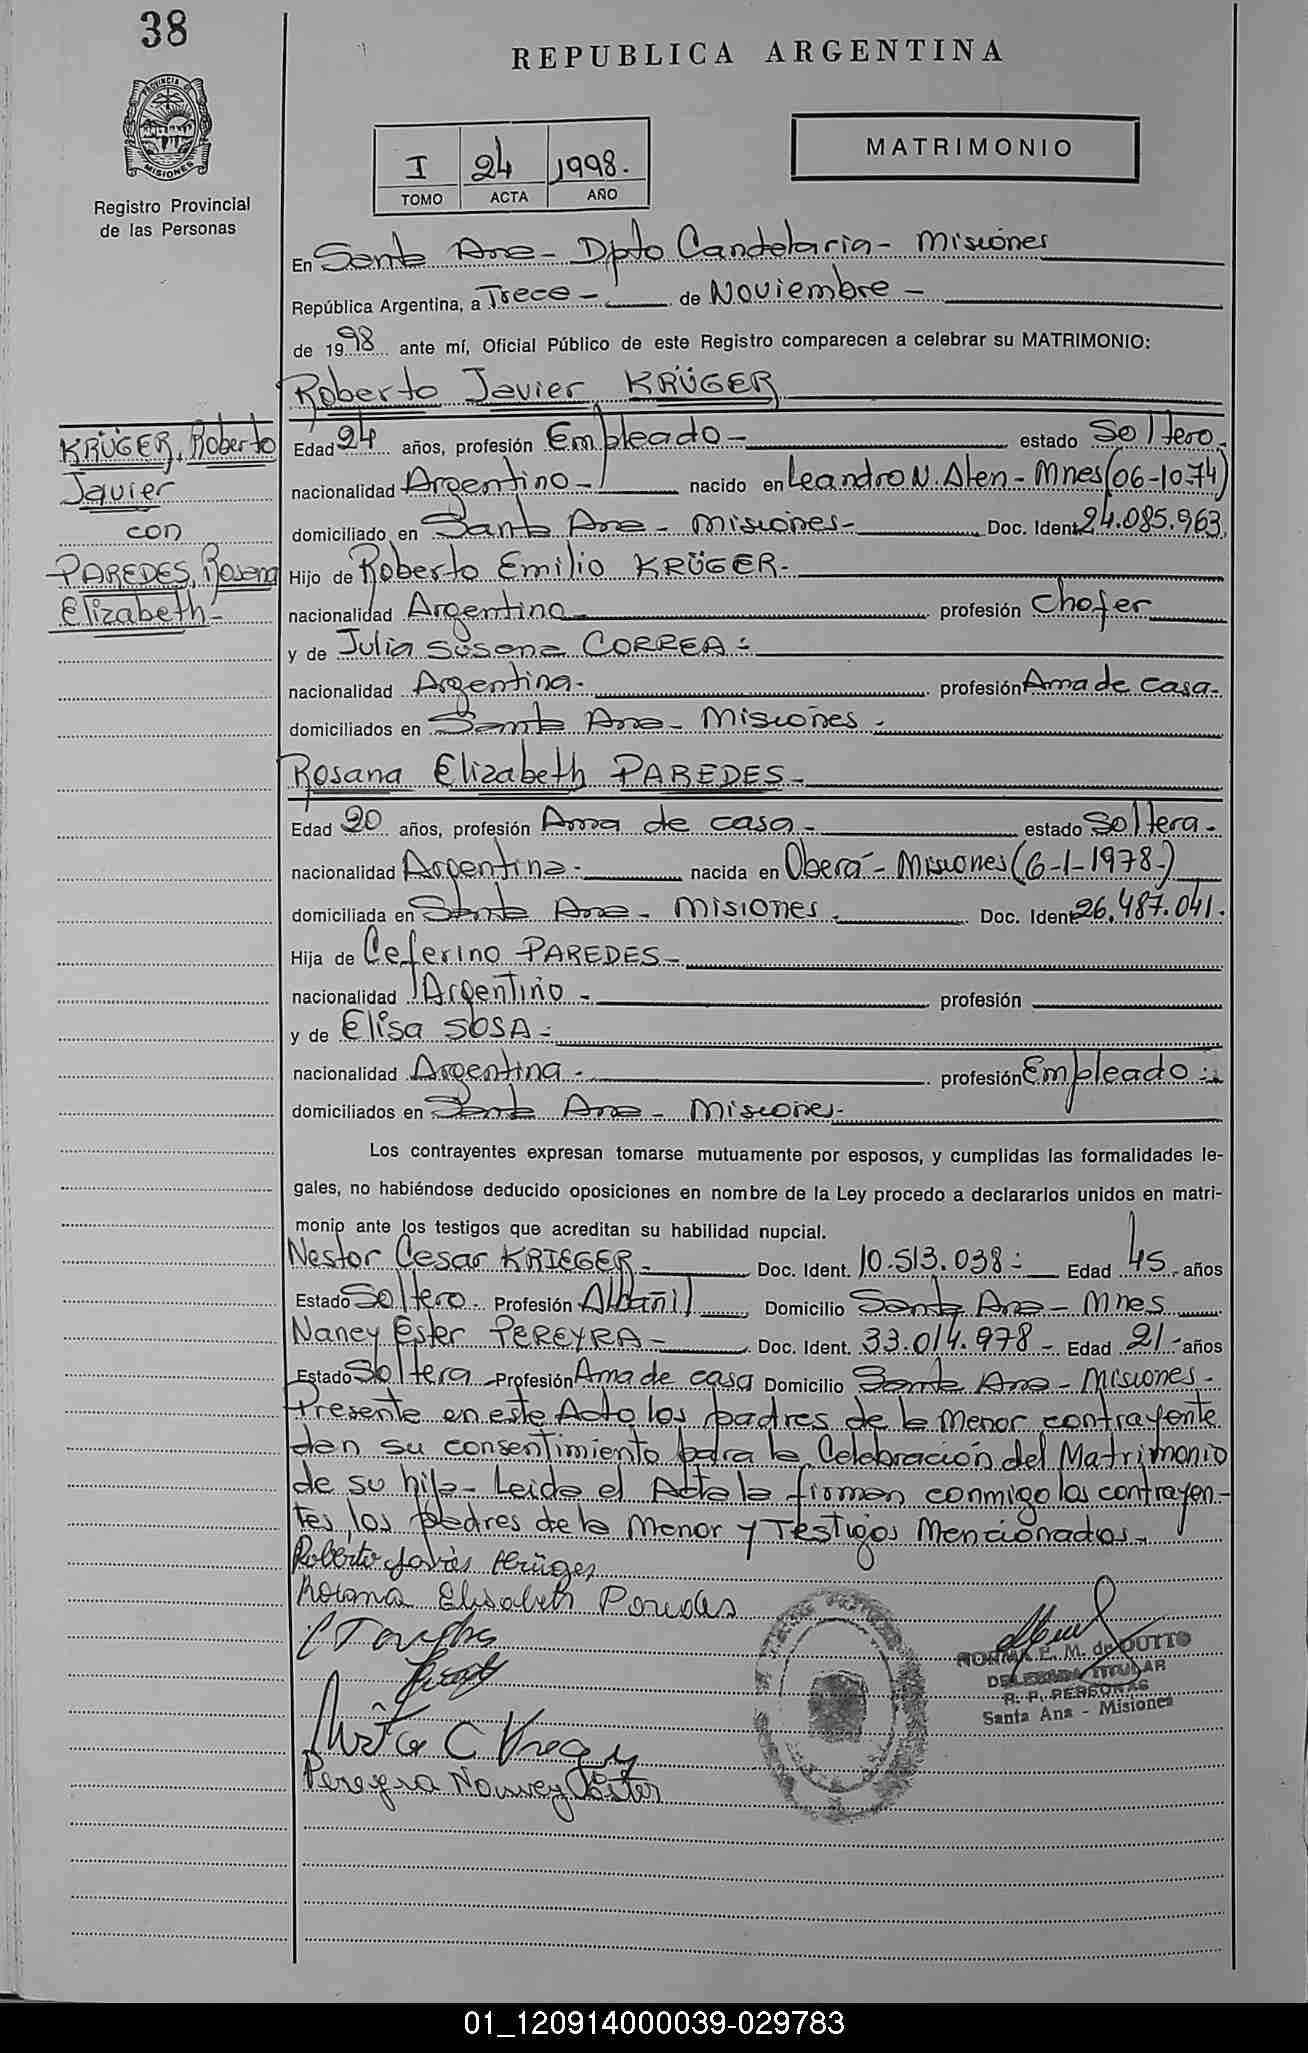 38
REPUBLICA ARGENTINA
PROVINCIA DE
MISIONES
Registro Provincial
de las Personas
I 24 1998.
TOMO ACTA AÑO
MATRIMONIO
En Santa Ana - Dpto Candelaria - Misiones
República Argentina, a Trece - de Noviembre -
de 1998 ante mí, Oficial Público de este Registro comparecen a celebrar su MATRIMONIO:
Roberto Javier KRÜGER
KRÜGER, Roberto
Javier
con
PAREDES, Rosana
Elizabeth -
Edad 24 años, profesión Empleado - estado Soltero.
nacionalidad Argentino - nacido en Leandro N. Alen - Mnes (06-10-74)
domiciliado en Santa Ana - Misiones - Doc. Ident. 24.085.963
Hijo de Roberto Emilio KRÜGER -
nacionalidad Argentino profesión Chofer
y de Julia Susana CORREA -
nacionalidad Argentina - profesión Ama de casa -
domiciliados en Santa Ana - Misiones -
Rosana Elizabeth PAREDES -
Edad 20 años, profesión Ama de casa - estado Soltera -
nacionalidad Argentina - nacida en Oberá - Misiones (6-1-1978-)
domiciliada en Santa Ana - Misiones - Doc. Ident. 26.487.041.
Hija de Ceferino PAREDES -
nacionalidad Argentino - profesión
y de Elisa SOSA -
nacionalidad Argentina - profesión Empleado -
domiciliados en Santa Ana - Misiones -
Los contrayentes expresan tomarse mutuamente por esposos, y cumplidas las formalidades le-
gales, no habiéndose deducido oposiciones en nombre de la Ley procedo a declararlos unidos en matri-
monio ante los testigos que acreditan su habilidad nupcial.
Nestor Cesar KRIEGER - Doc. Ident. 10.513.038 - Edad 45 - años
Estado Soltero - Profesión Albañil Domicilio Santa Ana - Mnes
Nancy Ester PEREYRA - Doc. Ident. 33.014.978 - Edad 21 - años
Estado Soltera - Profesión Ama de casa Domicilio Santa Ana - Misiones -
Presente en este Acto los padres de la Menor contrayente
dan su consentimiento para la Celebración del Matrimonio
de su hija - Leida el Acta la firman conmigo los contrayen-
tes, los padres de la Menor y Testigos Mencionados -
Roberto Javier Krüger
Rosana Elisabeth Paredes
Pereyra Nancy Ester
NORMA E. M. de DUTTO
DELEGADA TITULAR
R. P. PERSONAS
Santa Ana - Misiones
01_120914000039-029783